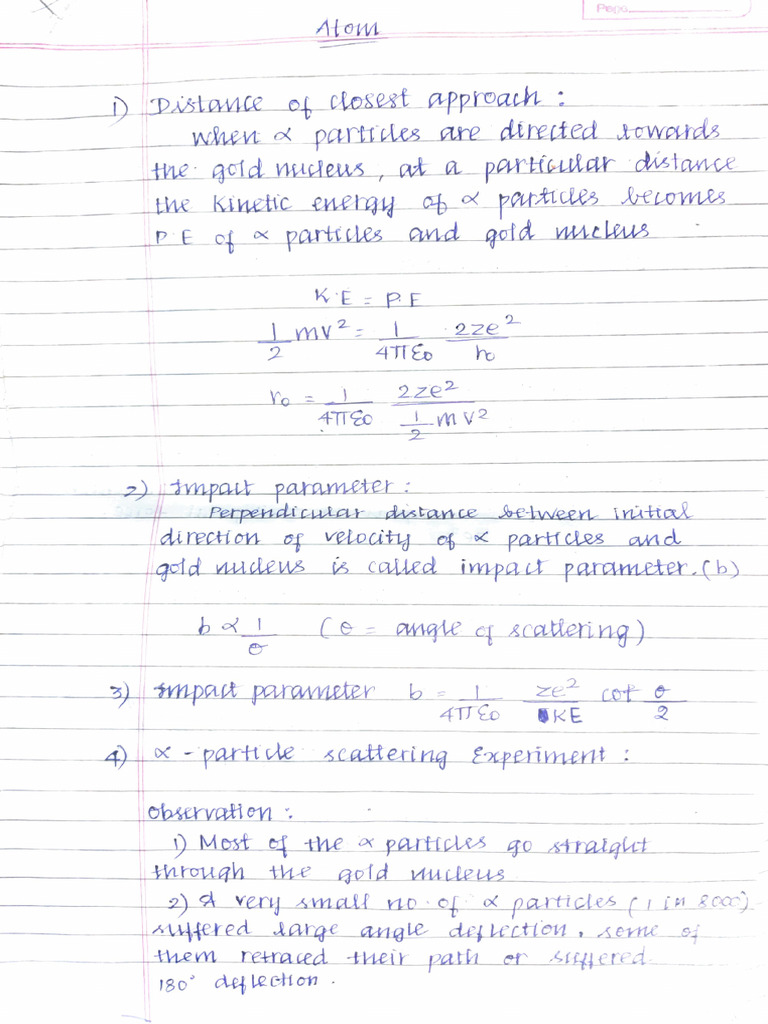 Page
Atom
1) Distance of closest approach :
When α particles are directed towards
the gold nucleus, at a particular distance
the kinetic energy of α particles becomes
P.E of α particles and gold nucleus
K.E = P.E
1/2 mv² = 1/4πε₀ 2ze²/r₀
r₀ = 1/4πε₀ 2ze²/(1/2 mv²)
2) Impact parameter :
Perpendicular distance between initial
direction of velocity of α particles and
gold nucleus is called impact parameter. (b)
b α 1/θ (θ = angle of scattering)
3) Impact parameter b = 1/4πε₀ ze²/KE cot θ/2
4) α - particle scattering Experiment :
Observation :
1) Most of the α particles go straight
through the gold nucleus
2) A very small no. of α particles (1 in 8000)
suffered large angle deflection, some of
them retraced their path or suffered
180° deflection.